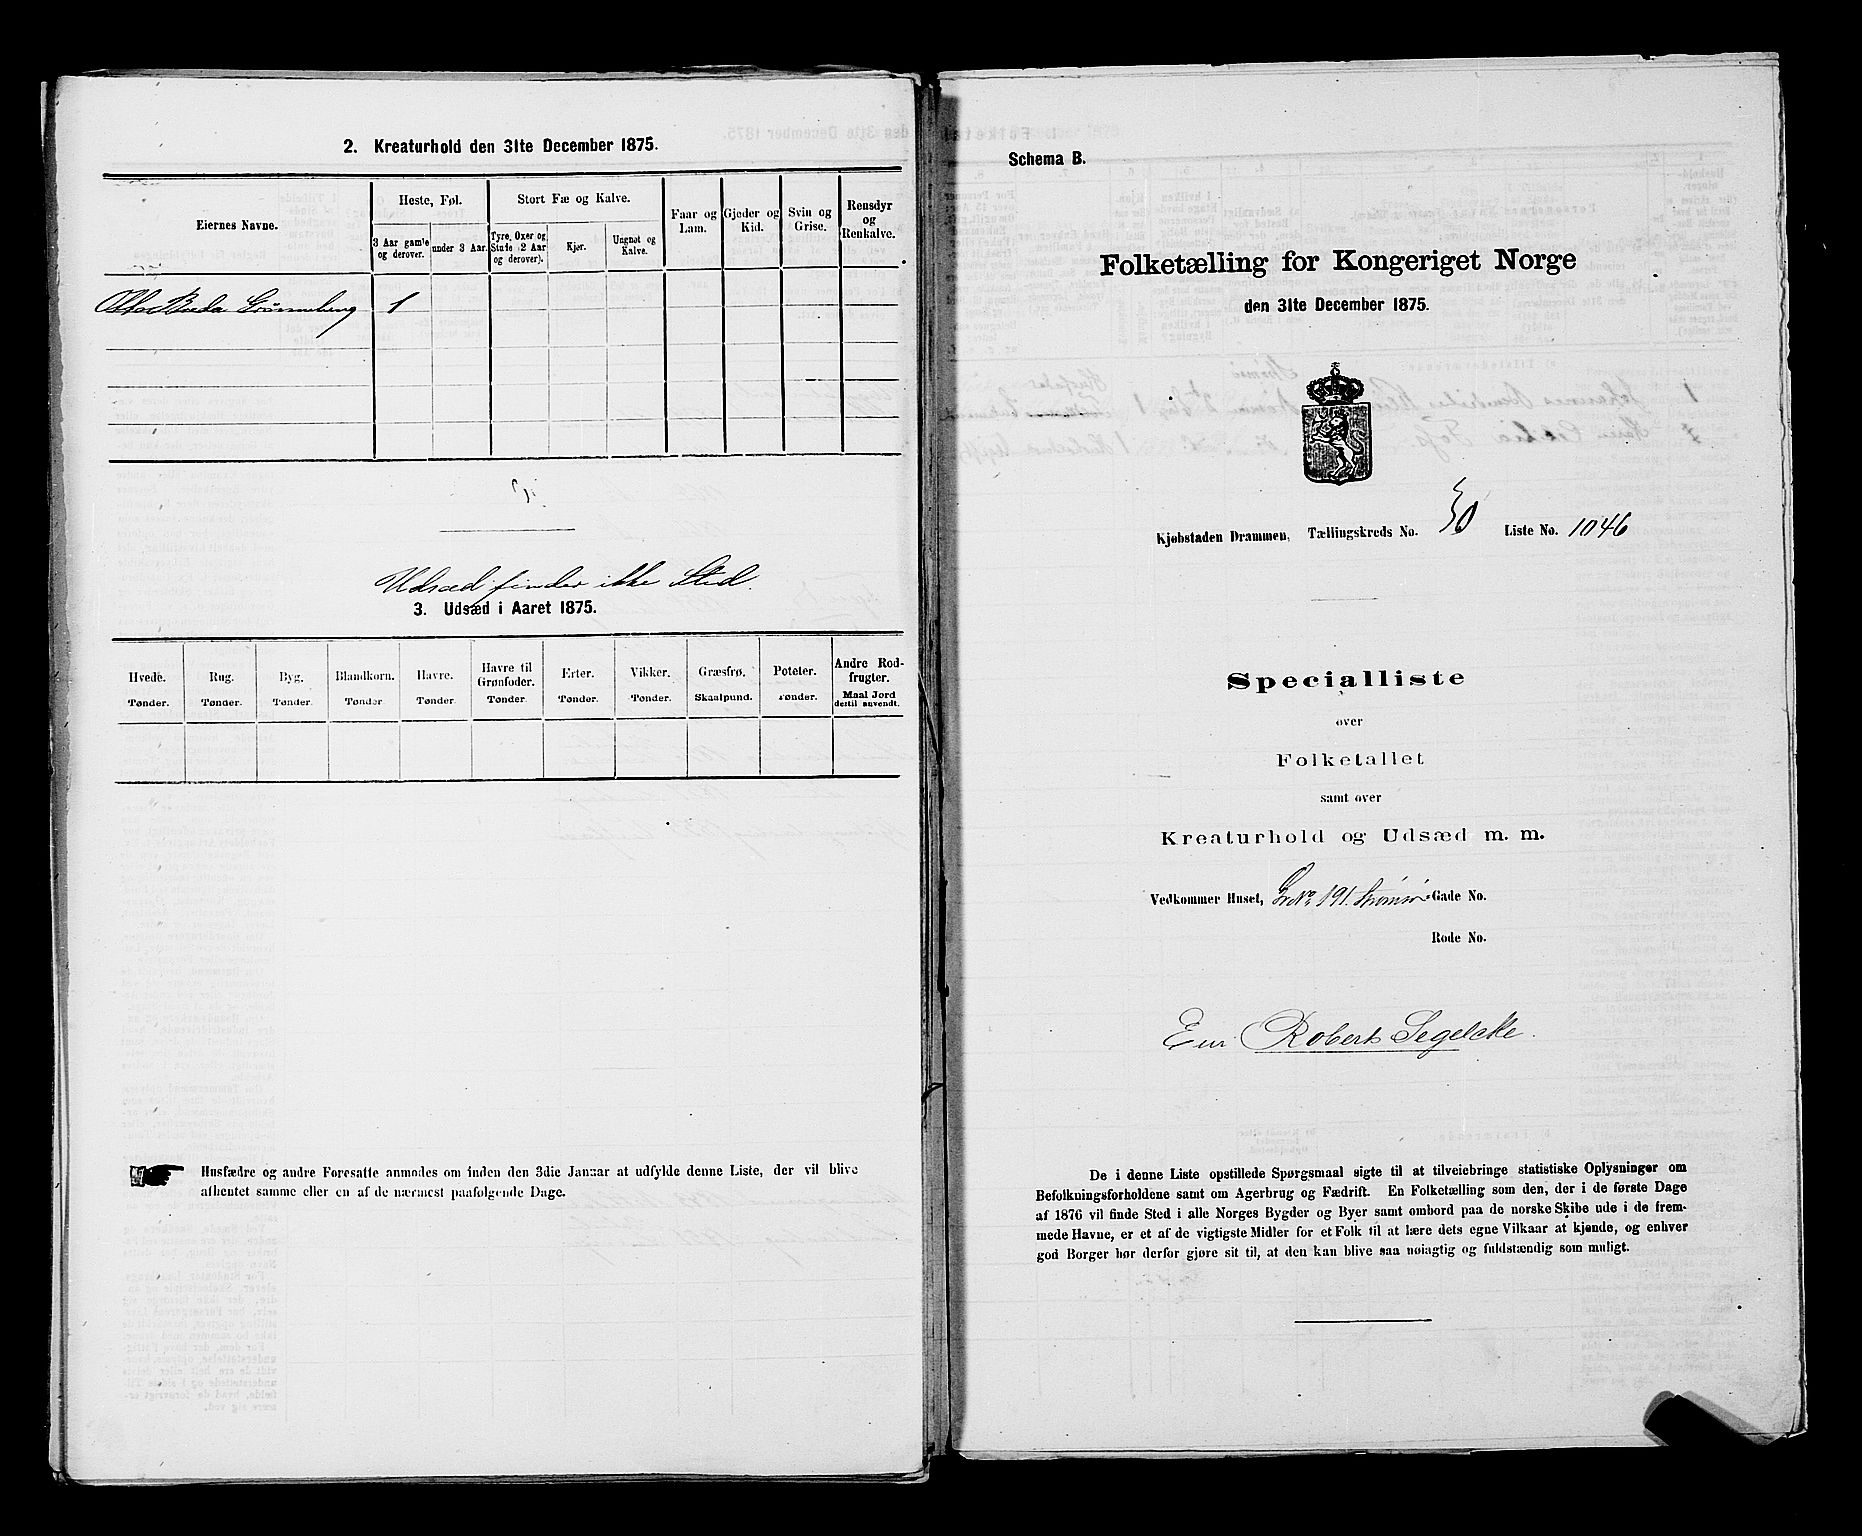 2. Kreaturhold den 31te December 1875.
Eiernes Navne.
Heste, Føl.
3 Aar gamle og derover.
under 3 Aar.
Stort Fæ og Kalve.
Tyre, Oxer og Stude (2 Aar og derover).
Kjør.
Ungnøt og Kalve.
Faar og Lam.
Gjeder og Kid.
Svin og Grise.
Rensdyr og Renkalve.
Grønneberg 1
Udsæd finder ikke Sted.
3. Udsæd i Aaret 1875.
Hvede. Tønder.
Rug. Tønder.
Byg. Tønder.
Blandkorn. Tønder
Havre. Tønder.
Havre til Grønfoder. Tønder.
Erter. Tønder.
Vikker. Tønder.
Græsfrø. Skaalpund.
Poteter. Tønder.
Andre Rodfrugter. Maal Jord dertil anvendt.
Husfædre og andre Foresatte anmodes om inden den 3die Januar at udfylde denne Liste, der vil blive
afhentet samme eller en af de nærmest paafølgende Dage.
Schema B.
Folketælling for Kongeriget Norge
den 31te December 1875.
Kjøbstaden Drammen, Tællingskreds No. 30 Liste No. 1046
Specialliste
over
Folketallet
samt over
Kreaturhold og Udsæd m. m.
Vedkommer Huset, Gr No. 191. Strømsø Gade No.
Rode No.
Eier Robert Segelcke.
De i denne Liste opstillede Spørgsmaal sigte til at tilveiebringe statistiske Oplysninger om
Befolkningsforholdene samt om Agerbrug og Fædrift. En Folketælling som den, der i de første Dage
af 1876 vil finde Sted i alle Norges Bygder og Byer samt ombord paa de norske Skibe ude i de frem-
mede Havne, er et af de vigtigste Midler for et Folk til at lære dets egne Vilkaar at kjende, og enhver
god Borger bør derfor gjøre sit til, at den kan blive saa nøiagtig og fuldstændig som muligt.